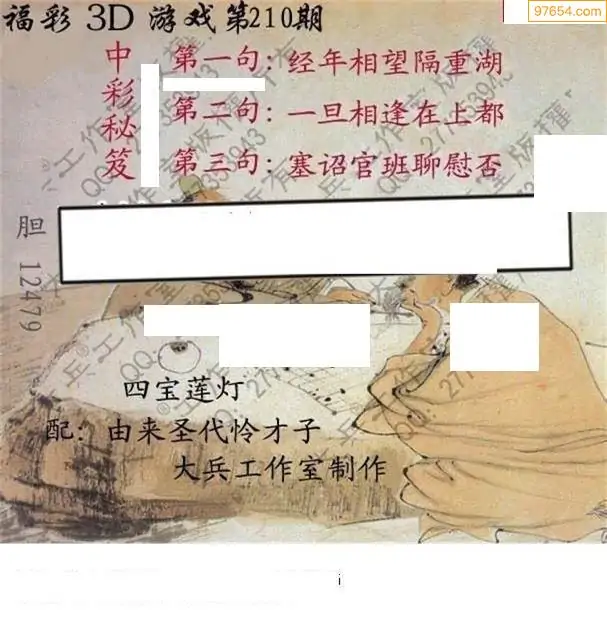 97654.com
福彩 3D 游戏第210期
中彩秘笈
第一句：经年相望隔重湖
第二句：一旦相逢在上都
第三句：塞诏官班聊慰否
胆 12479
四宝莲灯
配：由来圣代怜才子
大兵工作室制作
i